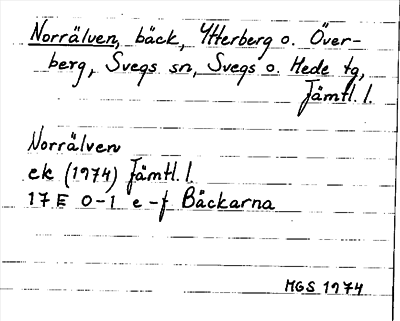 Norrälven, bäck, Ytterberg o. Över-
berg, Svegs sn, Svegs o. Hede tg,
Jämtl. l.
Norrälven
ek (1974) Jämtl. l.
17 E 0-1 e-f Bäckarna
MGS 1974